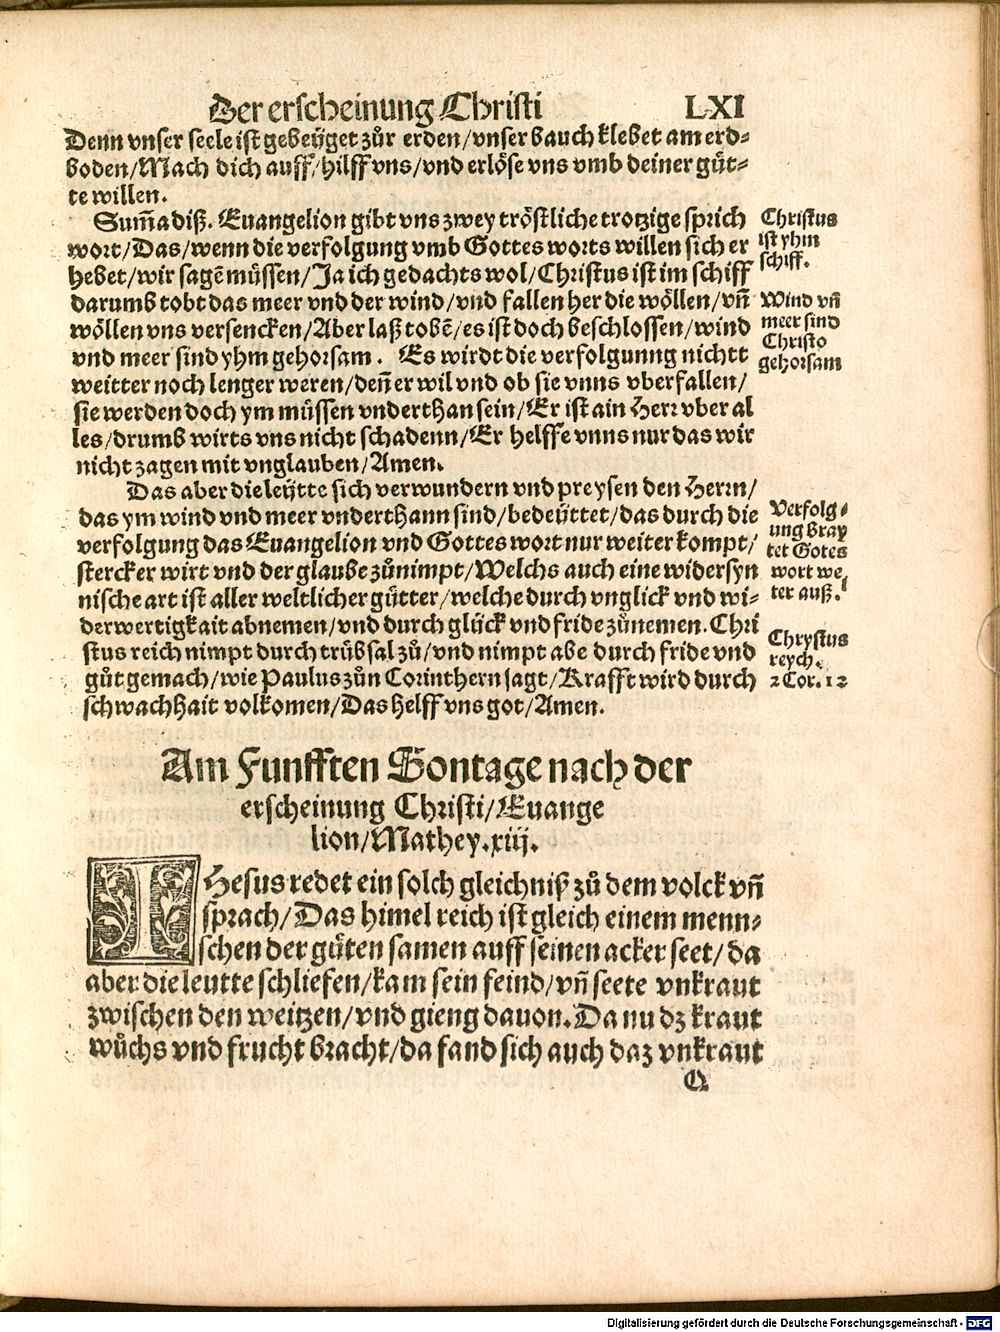 Der erscheinung Christi LXI
Denn vnser seele ist gebeÿget zůr erden/vnser bauch klebet am erd-
boden/Mach dich auff/hilff vns/vnd erlöse vns vmb deiner güt-
te willen.
Sum̃a diß. Euangelion gibt vns zwey tröstliche trotzige sprich
wort/Das/wenn die verfolgung vmb Gottes worts willen sich er
hebet/wir sagẽ müssen/Ja ich gedachts wol/Christus ist im schiff
darumb tobt das meer vnd der wind/vnd fallen her die wöllen/vñ
wöllen vns versencken/Aber laß tobẽ/es ist doch beschlossen/wind
vnd meer sind yhm gehorsam. Es wirdt die verfolgunng nichtt
weitter noch lenger weren/deñ er wil vnd ob sie vnns vberfallen/
sie werden doch ym müssen vnderthan sein/Er ist ain Herr vber al
les/drumb wirts vns nicht schadenn/Er helffe vnns nur das wir
nicht zagen mit vnglauben/Amen.
Christus
ist yhm
schiff.
Wind vñ
meer sind
Christo
gehorsam
Das aber die leÿtte sich verwundern vnd preysen den Herrn/
das ym wind vnd meer vnderthann sind/bedeÿttet/das durch die
verfolgung das Euangelion vnd Gottes wort nur weiter kompt/
stercker wirt vnd der glaube zůnimpt/Welchs auch eine widersyn
nische art ist aller weltlicher gütter/welche durch vnglick vnd wi-
derwertigkait abnemen/vnd durch glück vnd fride zůnemen. Chri
stus reich nimpt durch trübsal zů/vnd nimpt abe durch fride vnd
gůt gemach/wie Paulus zůn Corinthern sagt/Krafft wird durch
schwachhait volkomen/Das helff vns got/Amen.
Verfolg-
ung bray
tet Gotes
wort we,
ter auß.
Chrystus
reych.
2 Cor. 12
Am Funfften Sontage nach der
erscheinung Christi/Euange
lion/Mathey.xiij.
IHesus redet ein solch gleichniß zů dem volck vñ
sprach/Das himel reich ist gleich einem menn-
schen der gůten samen auff seinen acker seet/da
aber die leutte schliefen/kam sein feind/vñ seete vnkraut
zwischen den weitzen/vnd gieng dauon. Da nu dz kraut
wůchs vnd frucht bracht/da fand sich auch daz vnkraut
Q
Digitalisierung gefördert durch die Deutsche Forschungsgemeinschaft - DFG